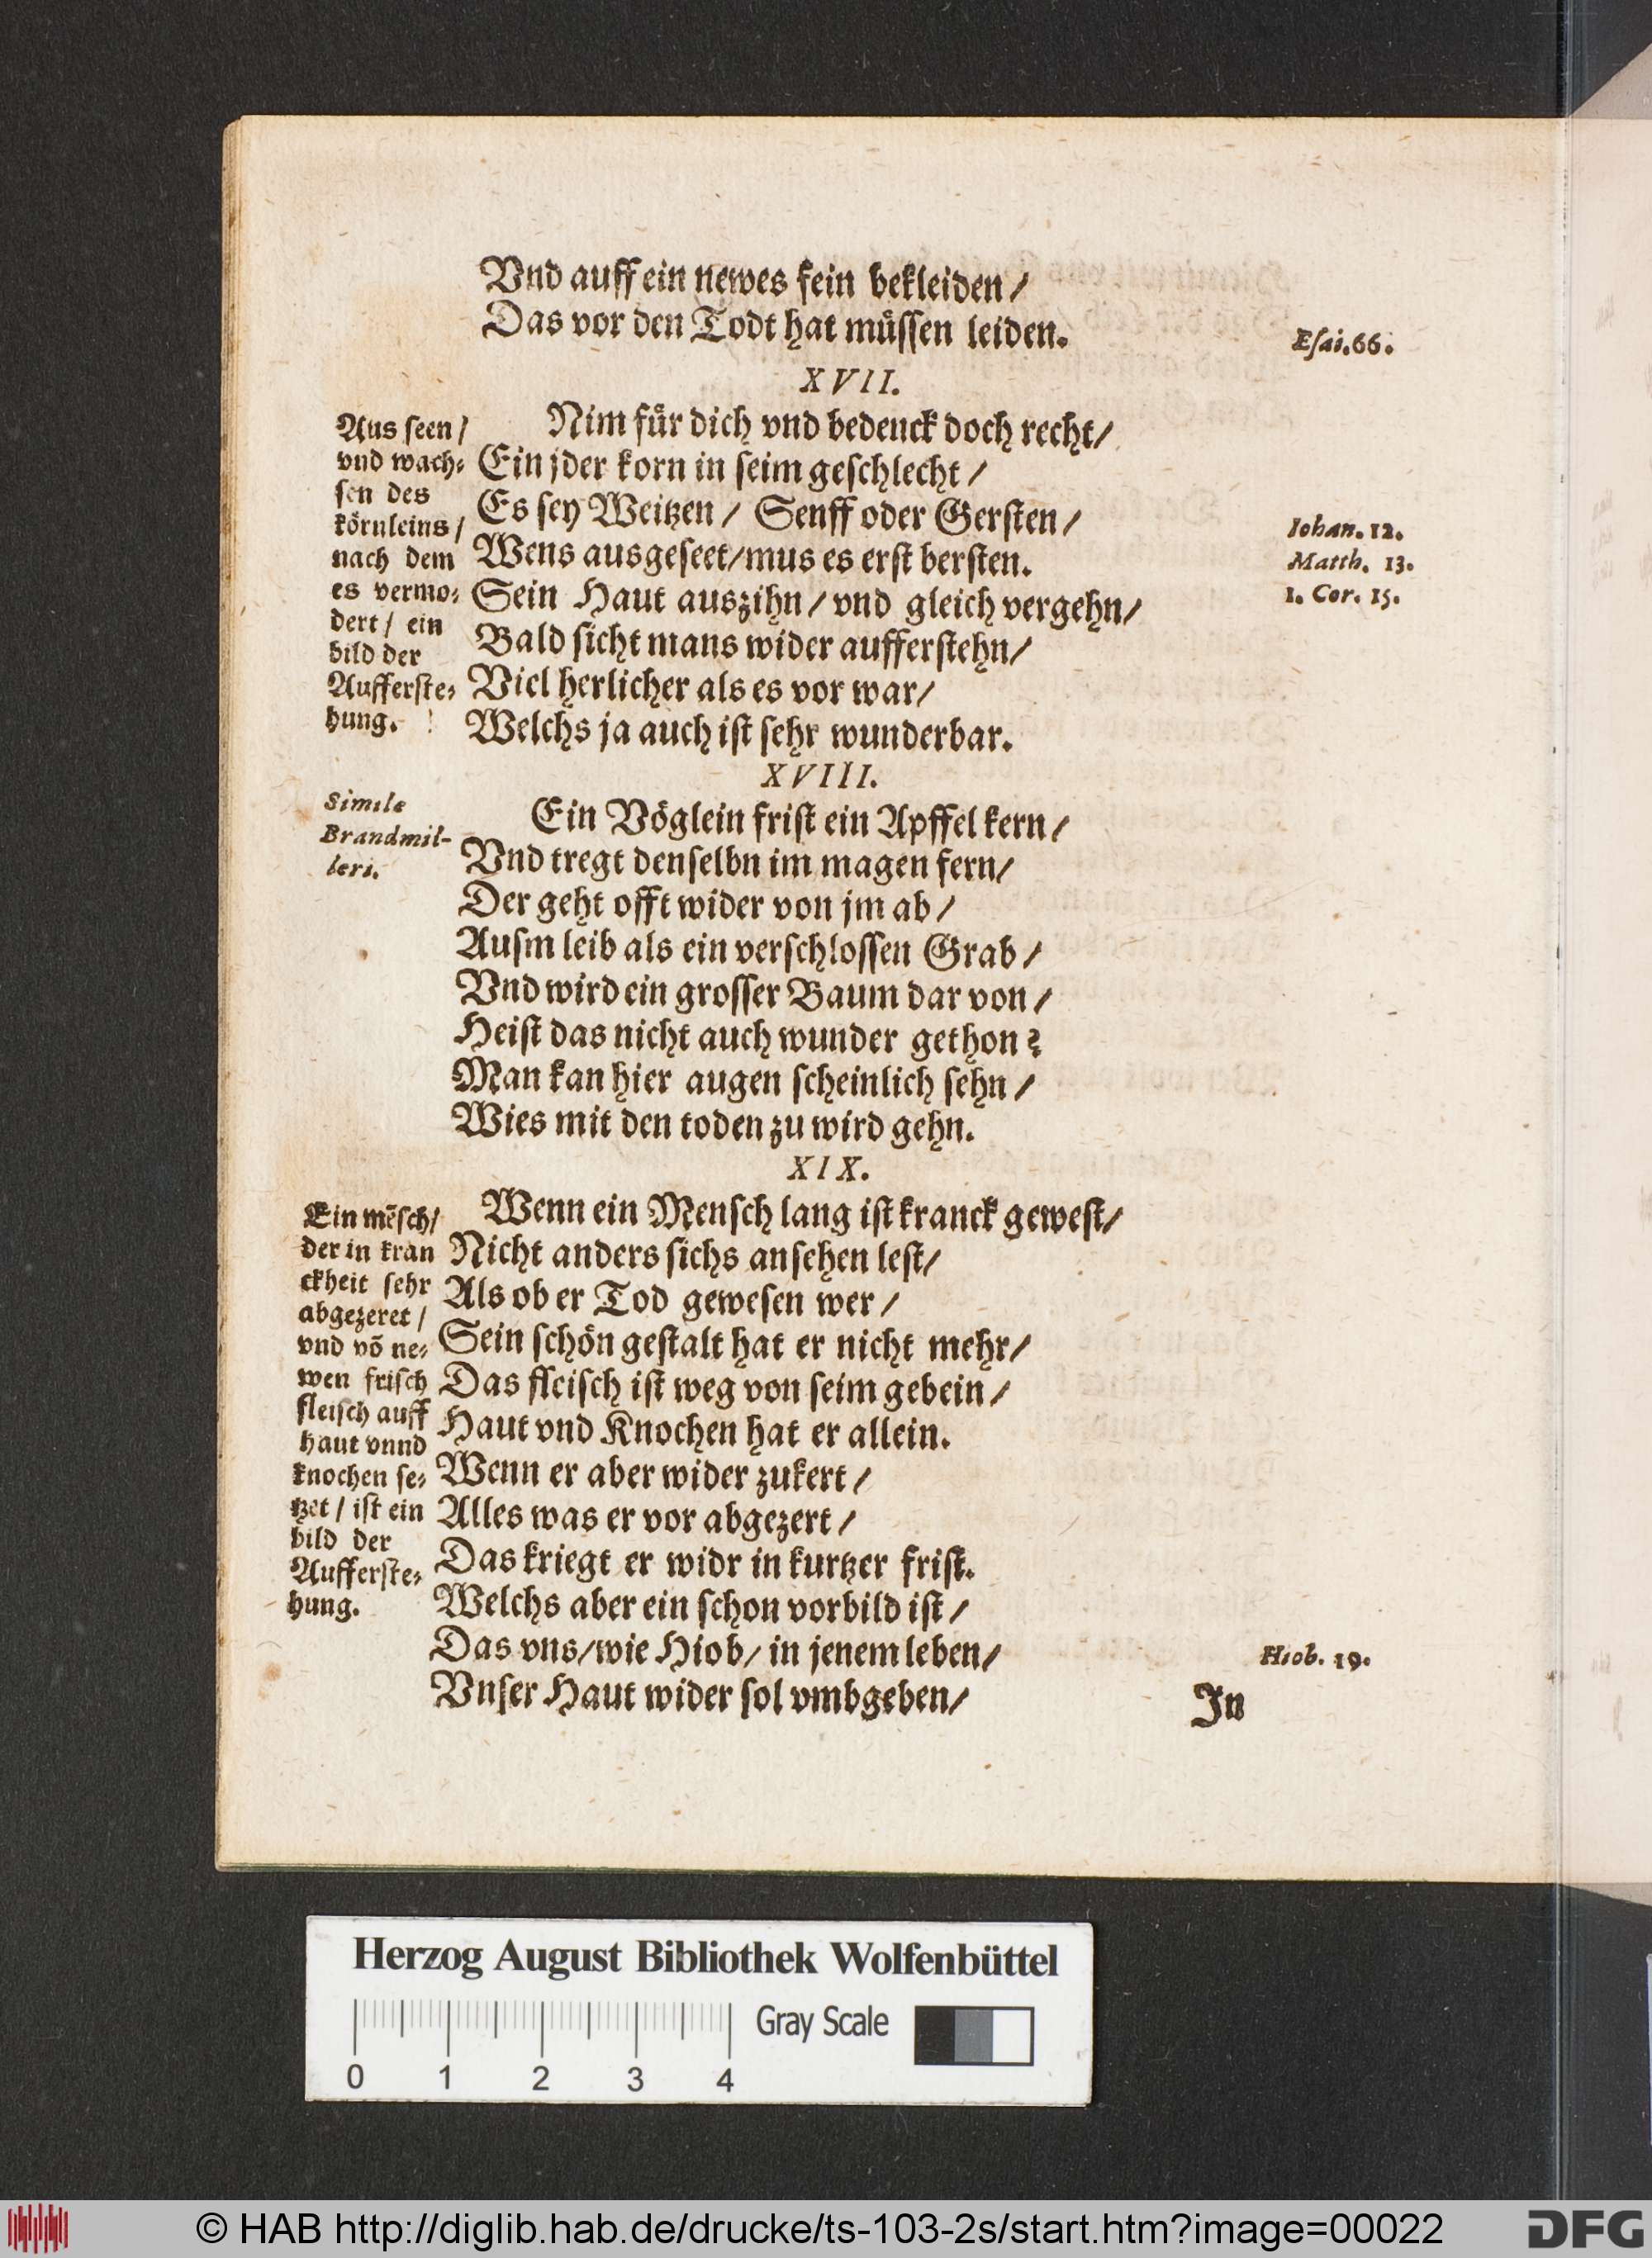 Vnd auff ein newes fein bekleiden /
Das vor den Todt hat müſſen leiden.
Eſai. 66.
XVII.
Aus ſeen /
vnd wach⸗
ſen des
körnleins /
nach dem
es vermo⸗
dert / ein
bild der
Aufferſte⸗
hung.
Nim für dich vnd bedenck doch recht /
Ein jder korn in ſeim geſchlecht /
Es ſey Weitzen / Senff oder Gerſten /
Wens ausgeſeet / mus es erſt berſten.
Sein Haut auszihn / vnd gleich vergehn /
Bald ſicht mans wider aufferſtehn /
Viel herlicher als es vor war /
Welchs ja auch iſt ſehr wunderbar.
Iohan. 12.
Matth. 13.
1. Cor. 15.
XVIII.
Simile
Brandmil-
leri.
Ein Vöglein friſt ein Apffel kern /
Vnd tregt denſelbn im magen fern /
Der geht offt wider von jm ab /
Auſm leib als ein verſchloſſen Grab /
Vnd wird ein groſſer Baum dar von /
Heiſt das nicht auch wunder gethon?
Man kan hier augen ſcheinlich ſehn /
Wies mit den toden zu wird gehn.
XIX.
Ein mẽſch /
der in kran
ckheit ſehr
abgezeret /
vnd võ ne⸗
wen friſch
fleiſch auff
haut vnnd
knochen ſe⸗
tzet / iſt ein
bild der
Aufferſte⸗
hung.
Wenn ein Menſch lang iſt kranck geweſt /
Nicht anders ſichs anſehen leſt /
Als ob er Tod geweſen wer /
Sein ſchön geſtalt hat er nicht mehr /
Das fleiſch iſt weg von ſeim gebein /
Haut vnd Knochen hat er allein.
Wenn er aber wider zukert /
Alles was er vor abgezert /
Das kriegt er widr in kurtzer friſt.
Welchs aber ein ſchon vorbild iſt /
Das vns / wie Hiob / in jenem leben /
Vnſer Haut wider ſol vmbgeben /
Hiob. 19.
In
Herzog August Bibliothek Wolfenbüttel
Gray Scale
0 1 2 3 4
© HAB http://diglib.hab.de/drucke/ts-103-2s/start.htm?image=00022
DFG